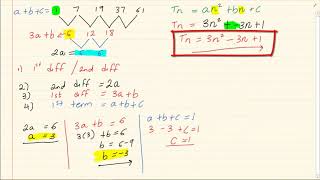 a+b+c= 1 7 19 37 61
3a+b ← 6 12 18
2a = 6 6
Tn = an² + bn + c
Tn = 3n² - 3n + 1
Tn = 3n² - 3n + 1
1) 1st diff / 2nd diff
2) 2nd diff = 2a
3) 1st diff = 3a+b
4) 1st term = a+b+c
2a = 6
a = 3
3a + b = 6
3(3) + b = 6
b = 6-9
b = -3
a+b+c = 1
3 -3 +c = 1
c = 1